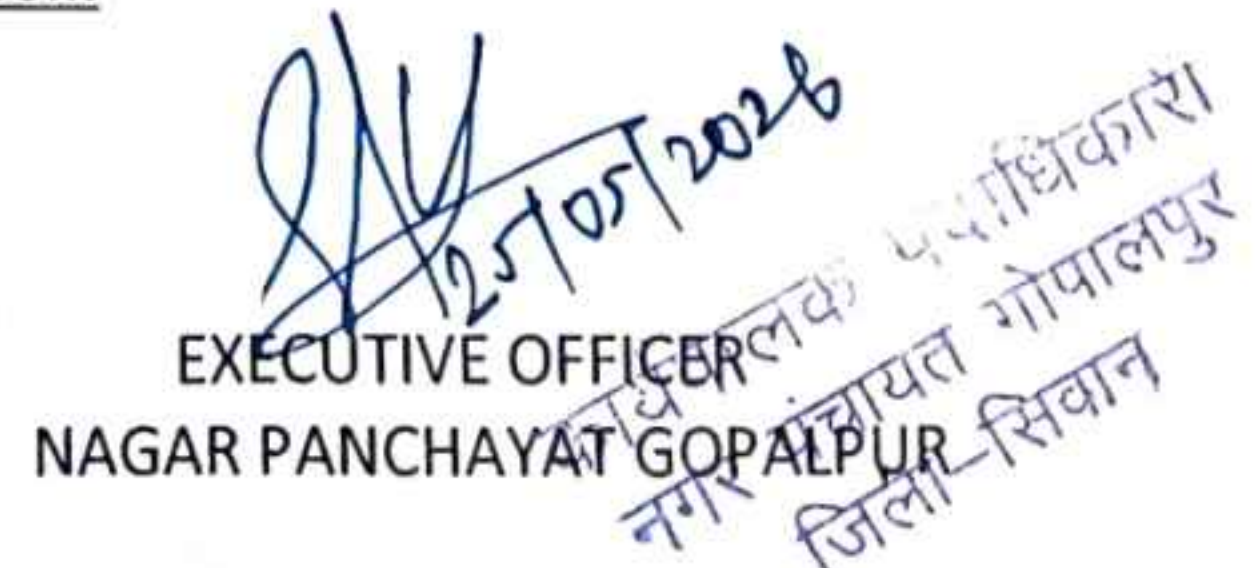 25/05/2026
EXECUTIVE OFFICER
NAGAR PANCHAYAT GOPALPUR
कार्यपालक पदाधिकारी
नगर पंचायत गोपालपुर
जिला-सिवान